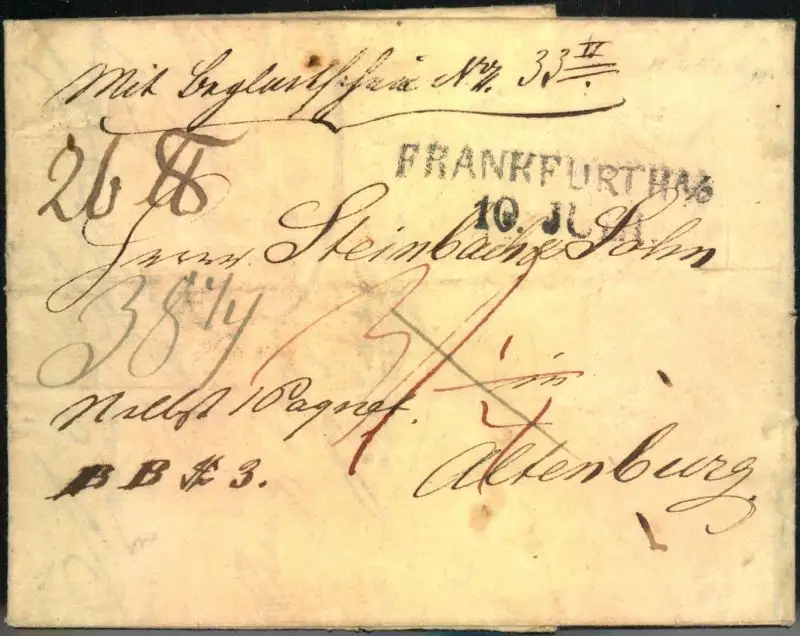 Mit Begleitschein No. 33 II.
26 ℔
FRANKFURT HA/O
10. JUNI
Herrn Steinbach & Sohn
38 1/4
in
Nebst 1 Paquet.
Altenburg.
B B # 3.